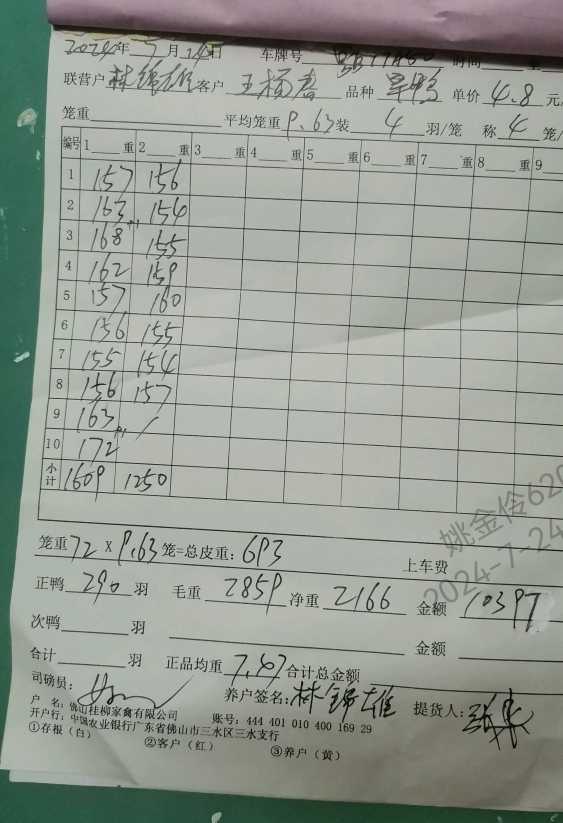 2024年7月14日 车牌号 时间
联营户林锦雄客户 王杨春 品种 旱鸭 单价4.8元
笼重 平均笼重9.63装 4 羽/笼 称4笼/
编号 1 重 2 重 3 重 4 重 5 重 6 重 7 重 8 重 9
1 157 156
2 163 154
3 168 155
4 162 159
5 157 160
6 156 155
7 155 154
8 156 157
9 163 /
10 172
小计 1609 1250
笼重72×9.63笼=总皮重：693 上车费
正鸭290羽 毛重2859净重2166 金额10397
次鸭 羽 金额
合计 羽 正品均重7.47合计总金额
司磅员： 养户签名：林锦雄 提货人：
户 名：佛山桂柳家禽有限公司 账号：444 401 010 400 169 29
开户行：中国农业银行广东省佛山市三水区三水支行
①存根（白） ②客户（红） ③养户（黄）
姚金伶620
2024-7-24